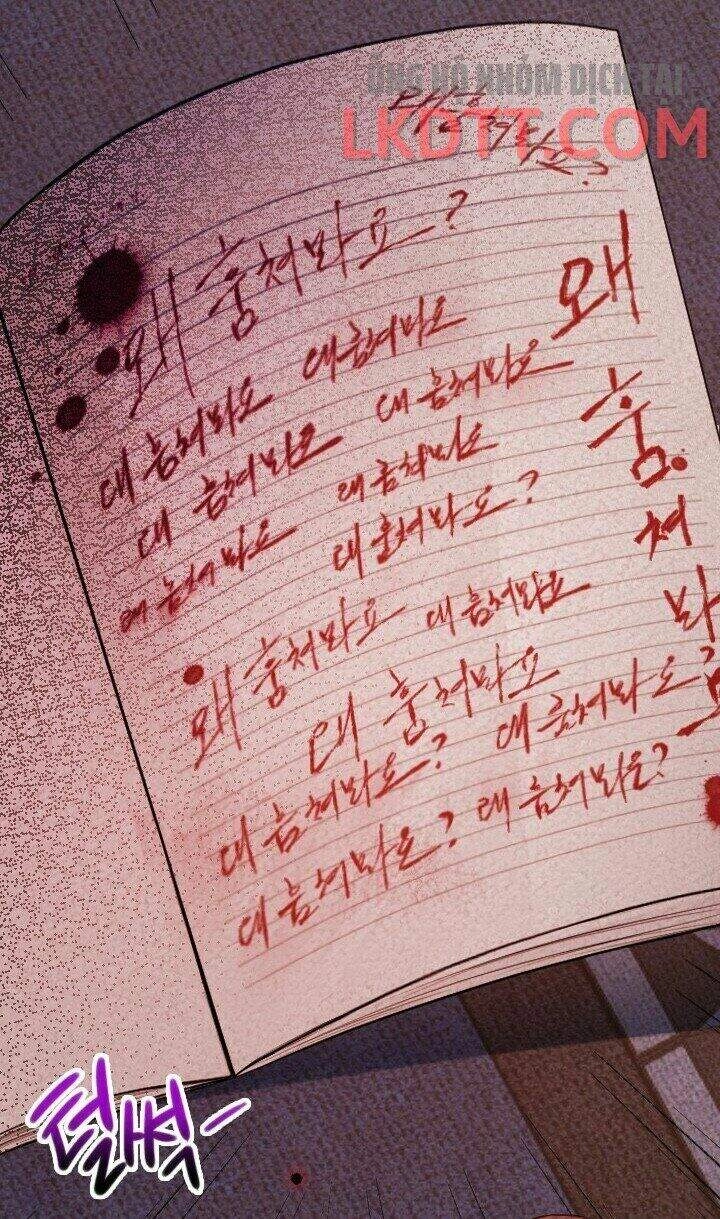 ỦNG HỘ NHÓM DỊCH TẠI
LKDTT.COM
왜 훔쳐봐요?
왜 훔쳐봐요?
왜 훔쳐봐요
왜 훔쳐봐요
왜 훔쳐봐요
왜 훔쳐봐요
왜 훔쳐봐요
왜 훔쳐봐요
왜 훔쳐봐요?
왜 훔쳐봐요
왜 훔쳐봐요
왜 훔쳐봐요
왜 훔쳐봐요
왜 훔쳐봐요?
왜 훔쳐봐요?
왜 훔쳐봐요?
왜 훔쳐봐요?
왜 훔쳐봐요
털썩